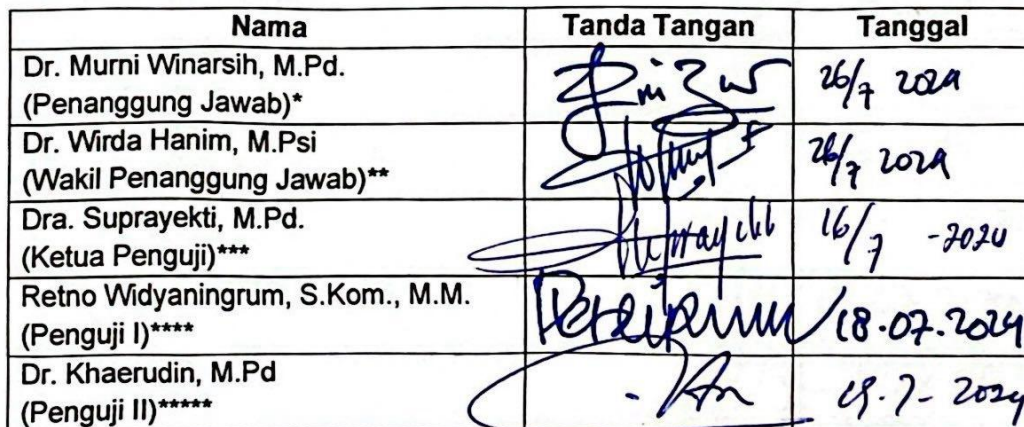 Nama Tanda Tangan Tanggal
Dr. Murni Winarsih, M.Pd.
(Penanggung Jawab)* 26/7 2024
Dr. Wirda Hanim, M.Psi
(Wakil Penanggung Jawab)** 26/7 2024
Dra. Suprayekti, M.Pd.
(Ketua Penguji)*** 16/7 -2024
Retno Widyaningrum, S.Kom., M.M.
(Penguji I)**** 18.07.2024
Dr. Khaerudin, M.Pd
(Penguji II)***** 2024